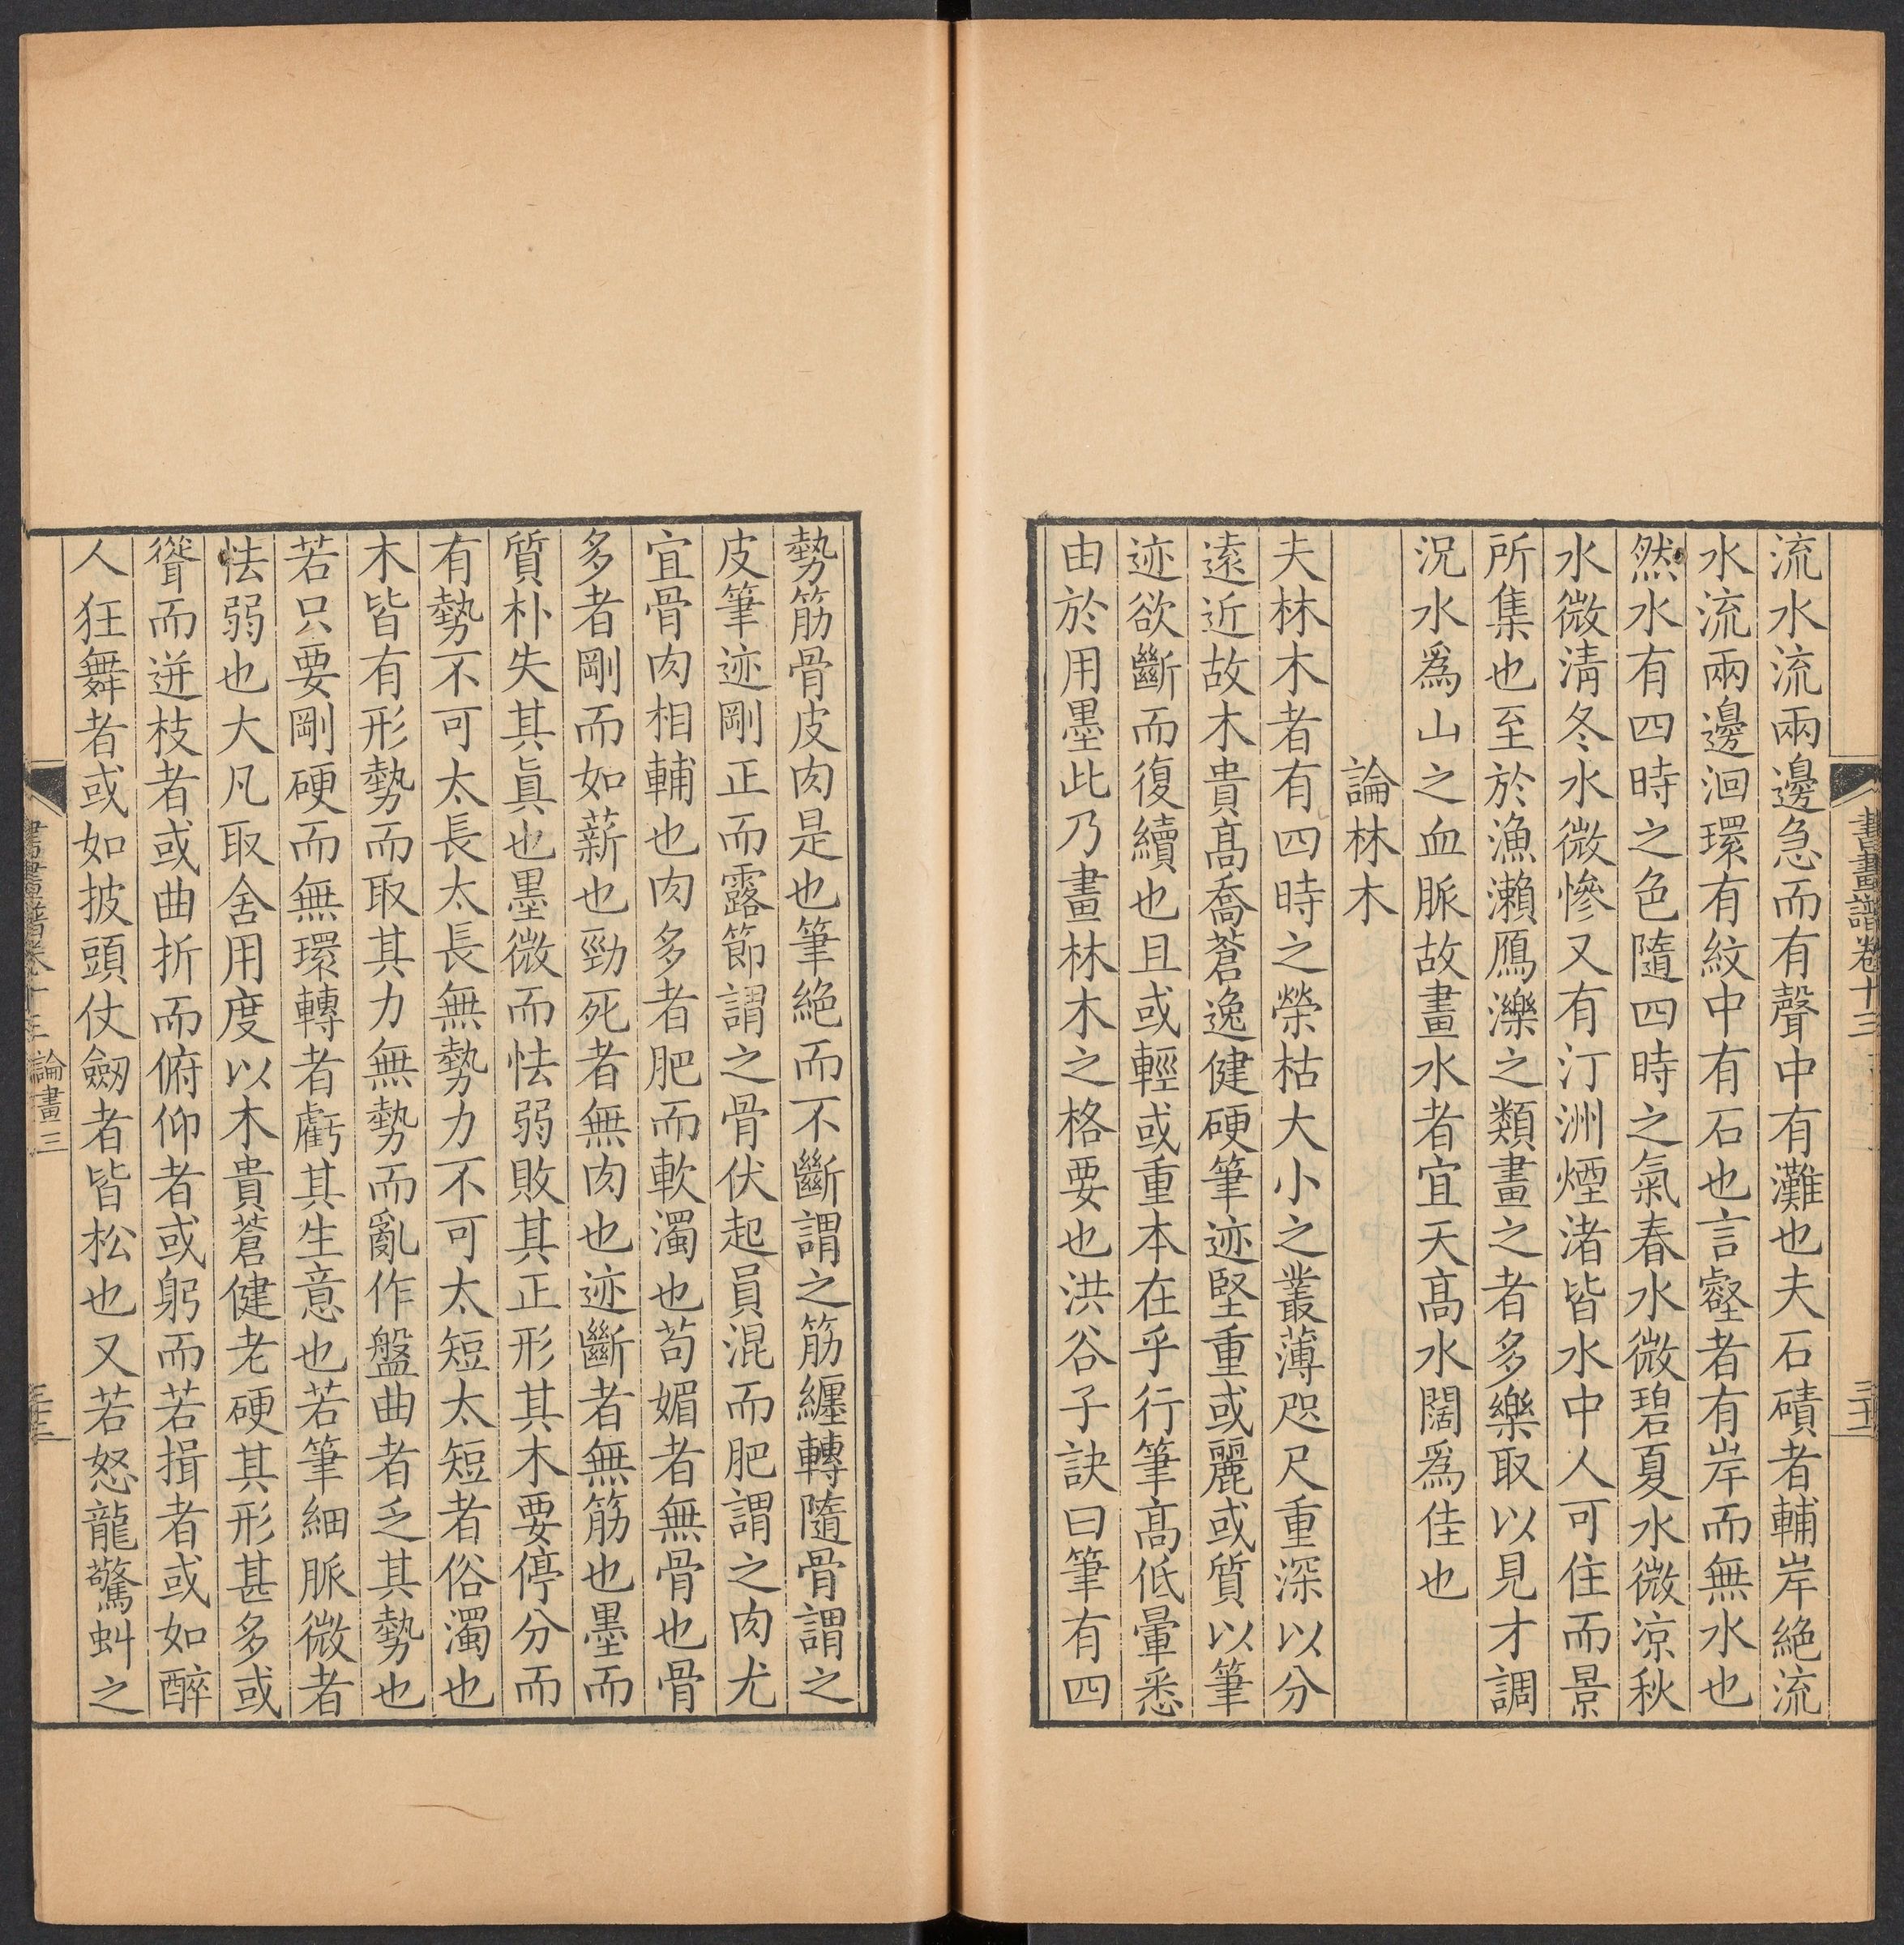 書畫譜卷十三
流水流兩邊急而有聲中有灘也夫石磧者輔岸絶流
水流兩邊洄環有紋中有石也言壑者有岸而無水也
然水有四時之色隨四時之氣春水微碧夏水微凉秋
水微淸冬水微慘又有汀洲煙渚皆水中人可住而景
所集也至於漁瀨鴈濼之類畫之者多樂取以見才調
況水爲山之血脈故畫水者宜天髙水闊爲佳也
論林木
夫林木者有四時之榮枯大小之叢薄咫尺重深以分
遠近故木貴髙喬蒼逸健硬筆迹堅重或麗或質以筆
迹欲斷而復續也且或輕或重本在乎行筆髙低暈悉
由於用墨此乃畫林木之格要也洪谷子訣曰筆有四
勢筋骨皮肉是也筆絶而不斷謂之筋纏轉隨骨謂之
皮筆迹剛正而露節謂之骨伏起員混而肥謂之肉尤
宜骨肉相輔也肉多者肥而軟濁也苟媚者無骨也骨
多者剛而如薪也勁死者無肉也迹斷者無筋也墨而
質朴失其眞也墨微而怯弱敗其正形其木要停分而
有勢不可太長太長無勢力不可太短太短者俗濁也
木皆有形勢而取其力無勢而亂作盤曲者乏其勢也
若只要剛硬而無環轉者虧其生意也若筆細脈微者
怯弱也大凡取舍用度以木貴蒼健老硬其形甚多或
聳而迸枝者或曲折而俯仰者或躬而若揖者或如醉
人狂舞者或如披頭仗劔者皆松也又若怒龍驚虯之
書畫譜卷十三 論畫三